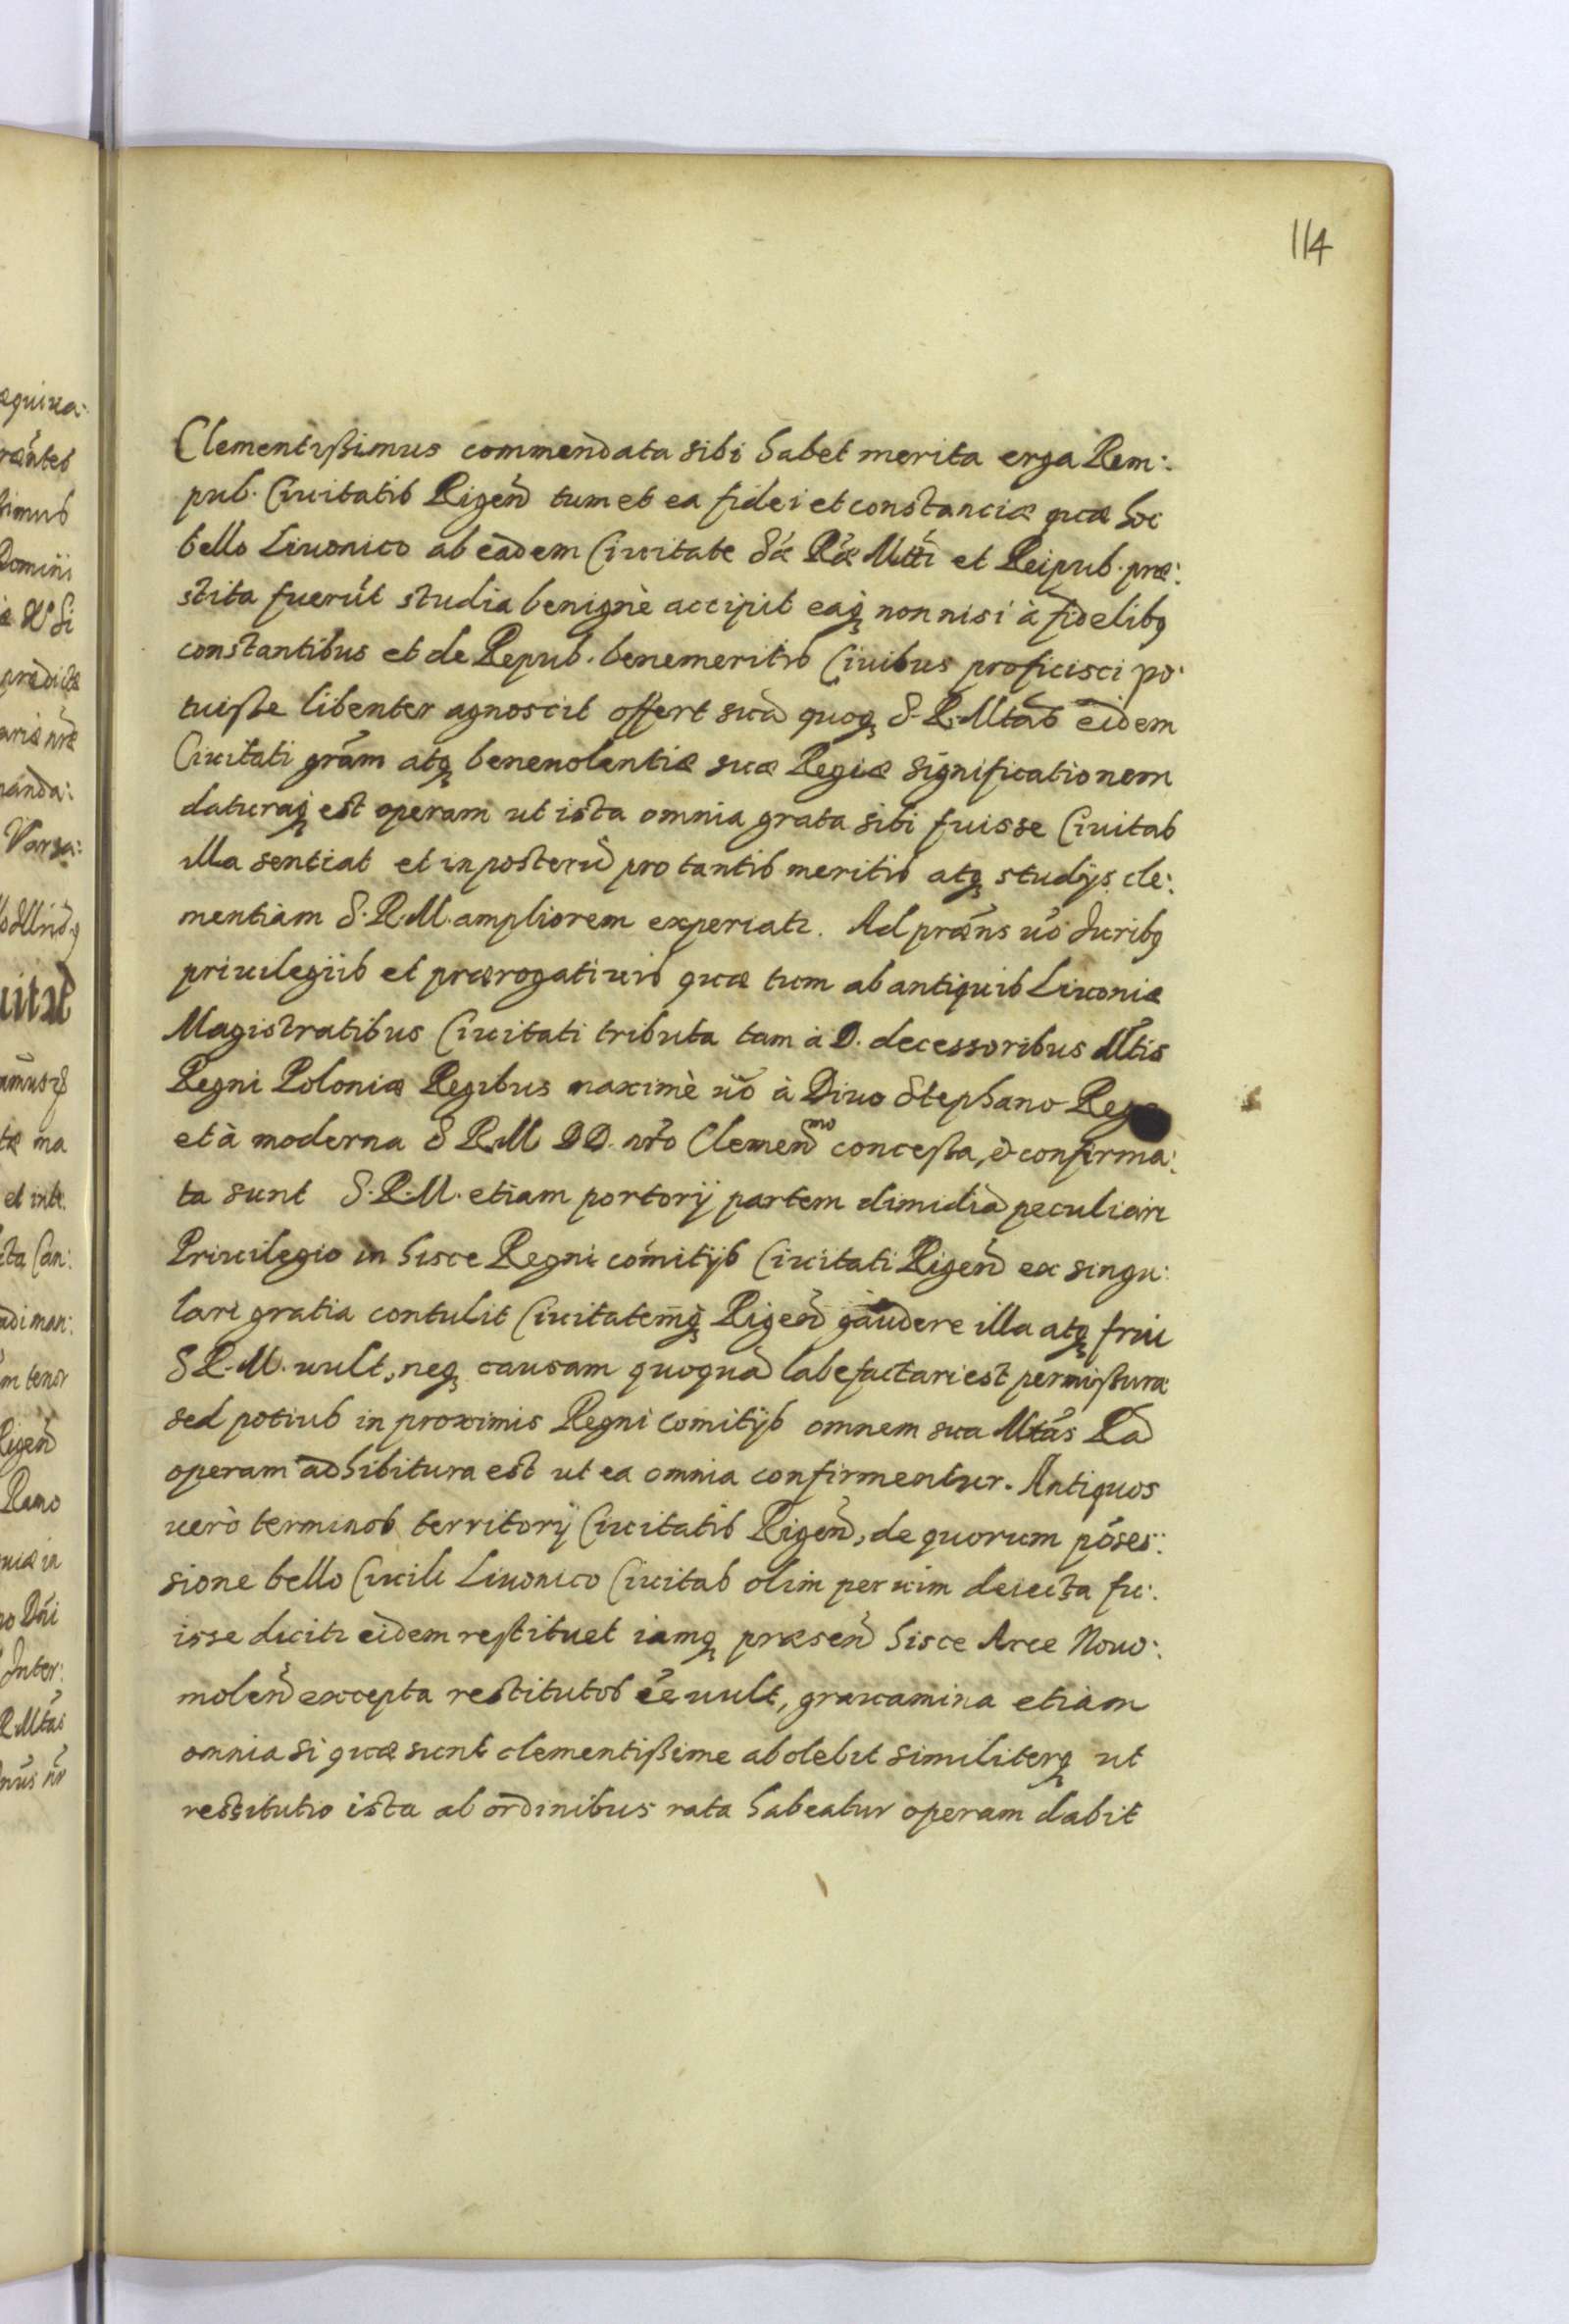 114
Clementißimus commendata sibi habet merita erga Rem:
pub. Ciuitatis Rigen̄ tum et ea fidei et constanciæ quæ hoc
bello Liuonico ab eadem Ciuitate Sæ Ræ Mtti et Reipub. præ:
stita fuerūt studia benignè accipit eaq; non nisi à fidelib9
constantibus et de Repub. benemeritis Ciuibus proficisci po:
tuiße libenter agnoscit offert suā quoq; S. R. Mtas eidem
Ciuitati grām atq; beneuolentiæ suæ Regiæ significationem
daturaq; est operam ut ista omnia grata sibi fuisse Ciuitas
illa sentiat et in posterū pro tantis meritis atq; studijs cle:
mentiam S. R. M. ampliorem experiatr. Ad præns uo Iurib9
priuilegiis et prærogatiuis quæ tum ab antiquis Liuoniæ
Magistratibus Ciuitati tributa tam à D. decessoribus Mtis
Regni Poloniæ Regibus maximè uo à Diuo Stephano Rege
et à moderna S R. M DD. nro Clemen̄mo conceßa, & confirma:
ta sunt S. R. M. etiam portorij partem dimidiā peculiari
Priuilegio in hisce Regni comitijs Ciuitati Rigen̄ ex singu:
lari gratia contulit Ciuitatemq; Rigen̄ gaudere illa atq; frui
S R. M. uult, neq; causam quoquā labefactari est permißura
sed potius in proximis Regni Comitijs omnem sua Mtas Ra
operam adhibitura est ut ea omnia confirmentur. Antiquos
uerò terminos territorij Ciuitatis Rigen̄, de quorum poses:
sione bello Ciuili Liuonico Ciuitas olim per uim deiecta fu:
isse dicitr eidem restituet iamq; præsen̄ hisce Arce Nouo:
molen̄ excepta restitutos ee uult, grauamina etiam
omnia si quæ sunt clementißime abolebit similiterq; ut
restitutio ista ab ordinibus rata habeatur operam dabit